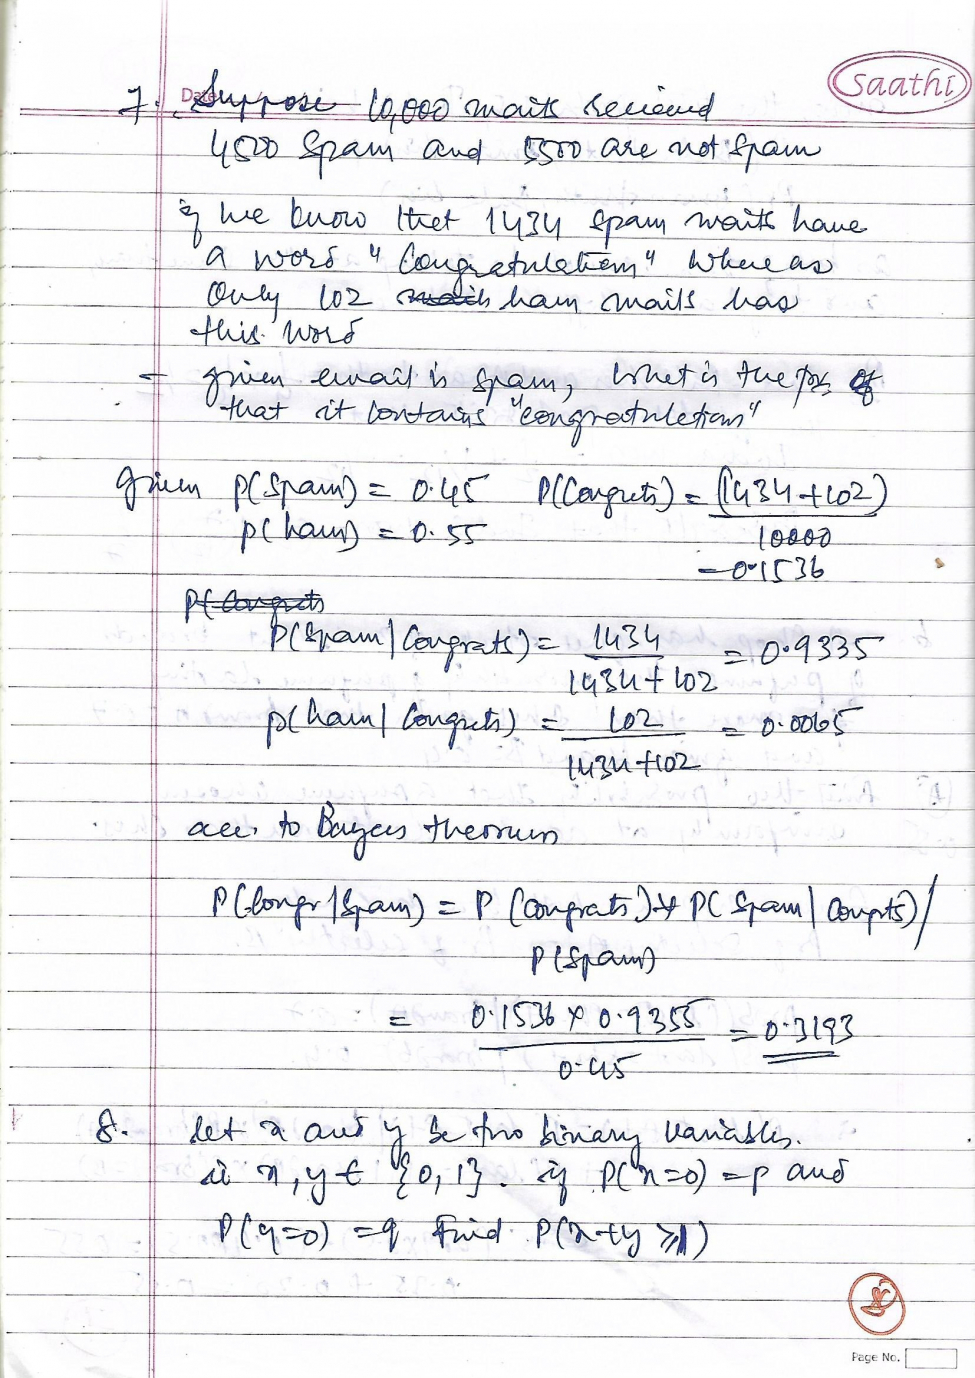 Saathi
Date
7. Suppose 10,000 mails recieved
4500 Spam and 5500 are not spam
if we know that 1434 spam mails have
a word "Congratulations" where as
only 102 mails ham mails has
this word
- given email is spam, what is the prob of
that it contains "congratulations"
given P(Spam) = 0.45 P(Congrats) = (1434+102)
p(ham) = 0.55 10000
= 0.1536
P(Congrats
P(Spam | Congrats) = 1434 = 0.9335
1434+102
p(ham | Congrats) = 102 = 0.0065
1434+102
acc. to Bayes theorem
P(Congr | Spam) = P(Congrats) * P(Spam | Congrts) /
P(Spam)
= 0.1536 × 0.9355 = 0.3193
0.45
8. let x and y be two binary variables.
ie x, y ∈ {0, 1}. if P(x=0) = p and
P(y=0) = q find P(x+y ≥ 1)
Page No.